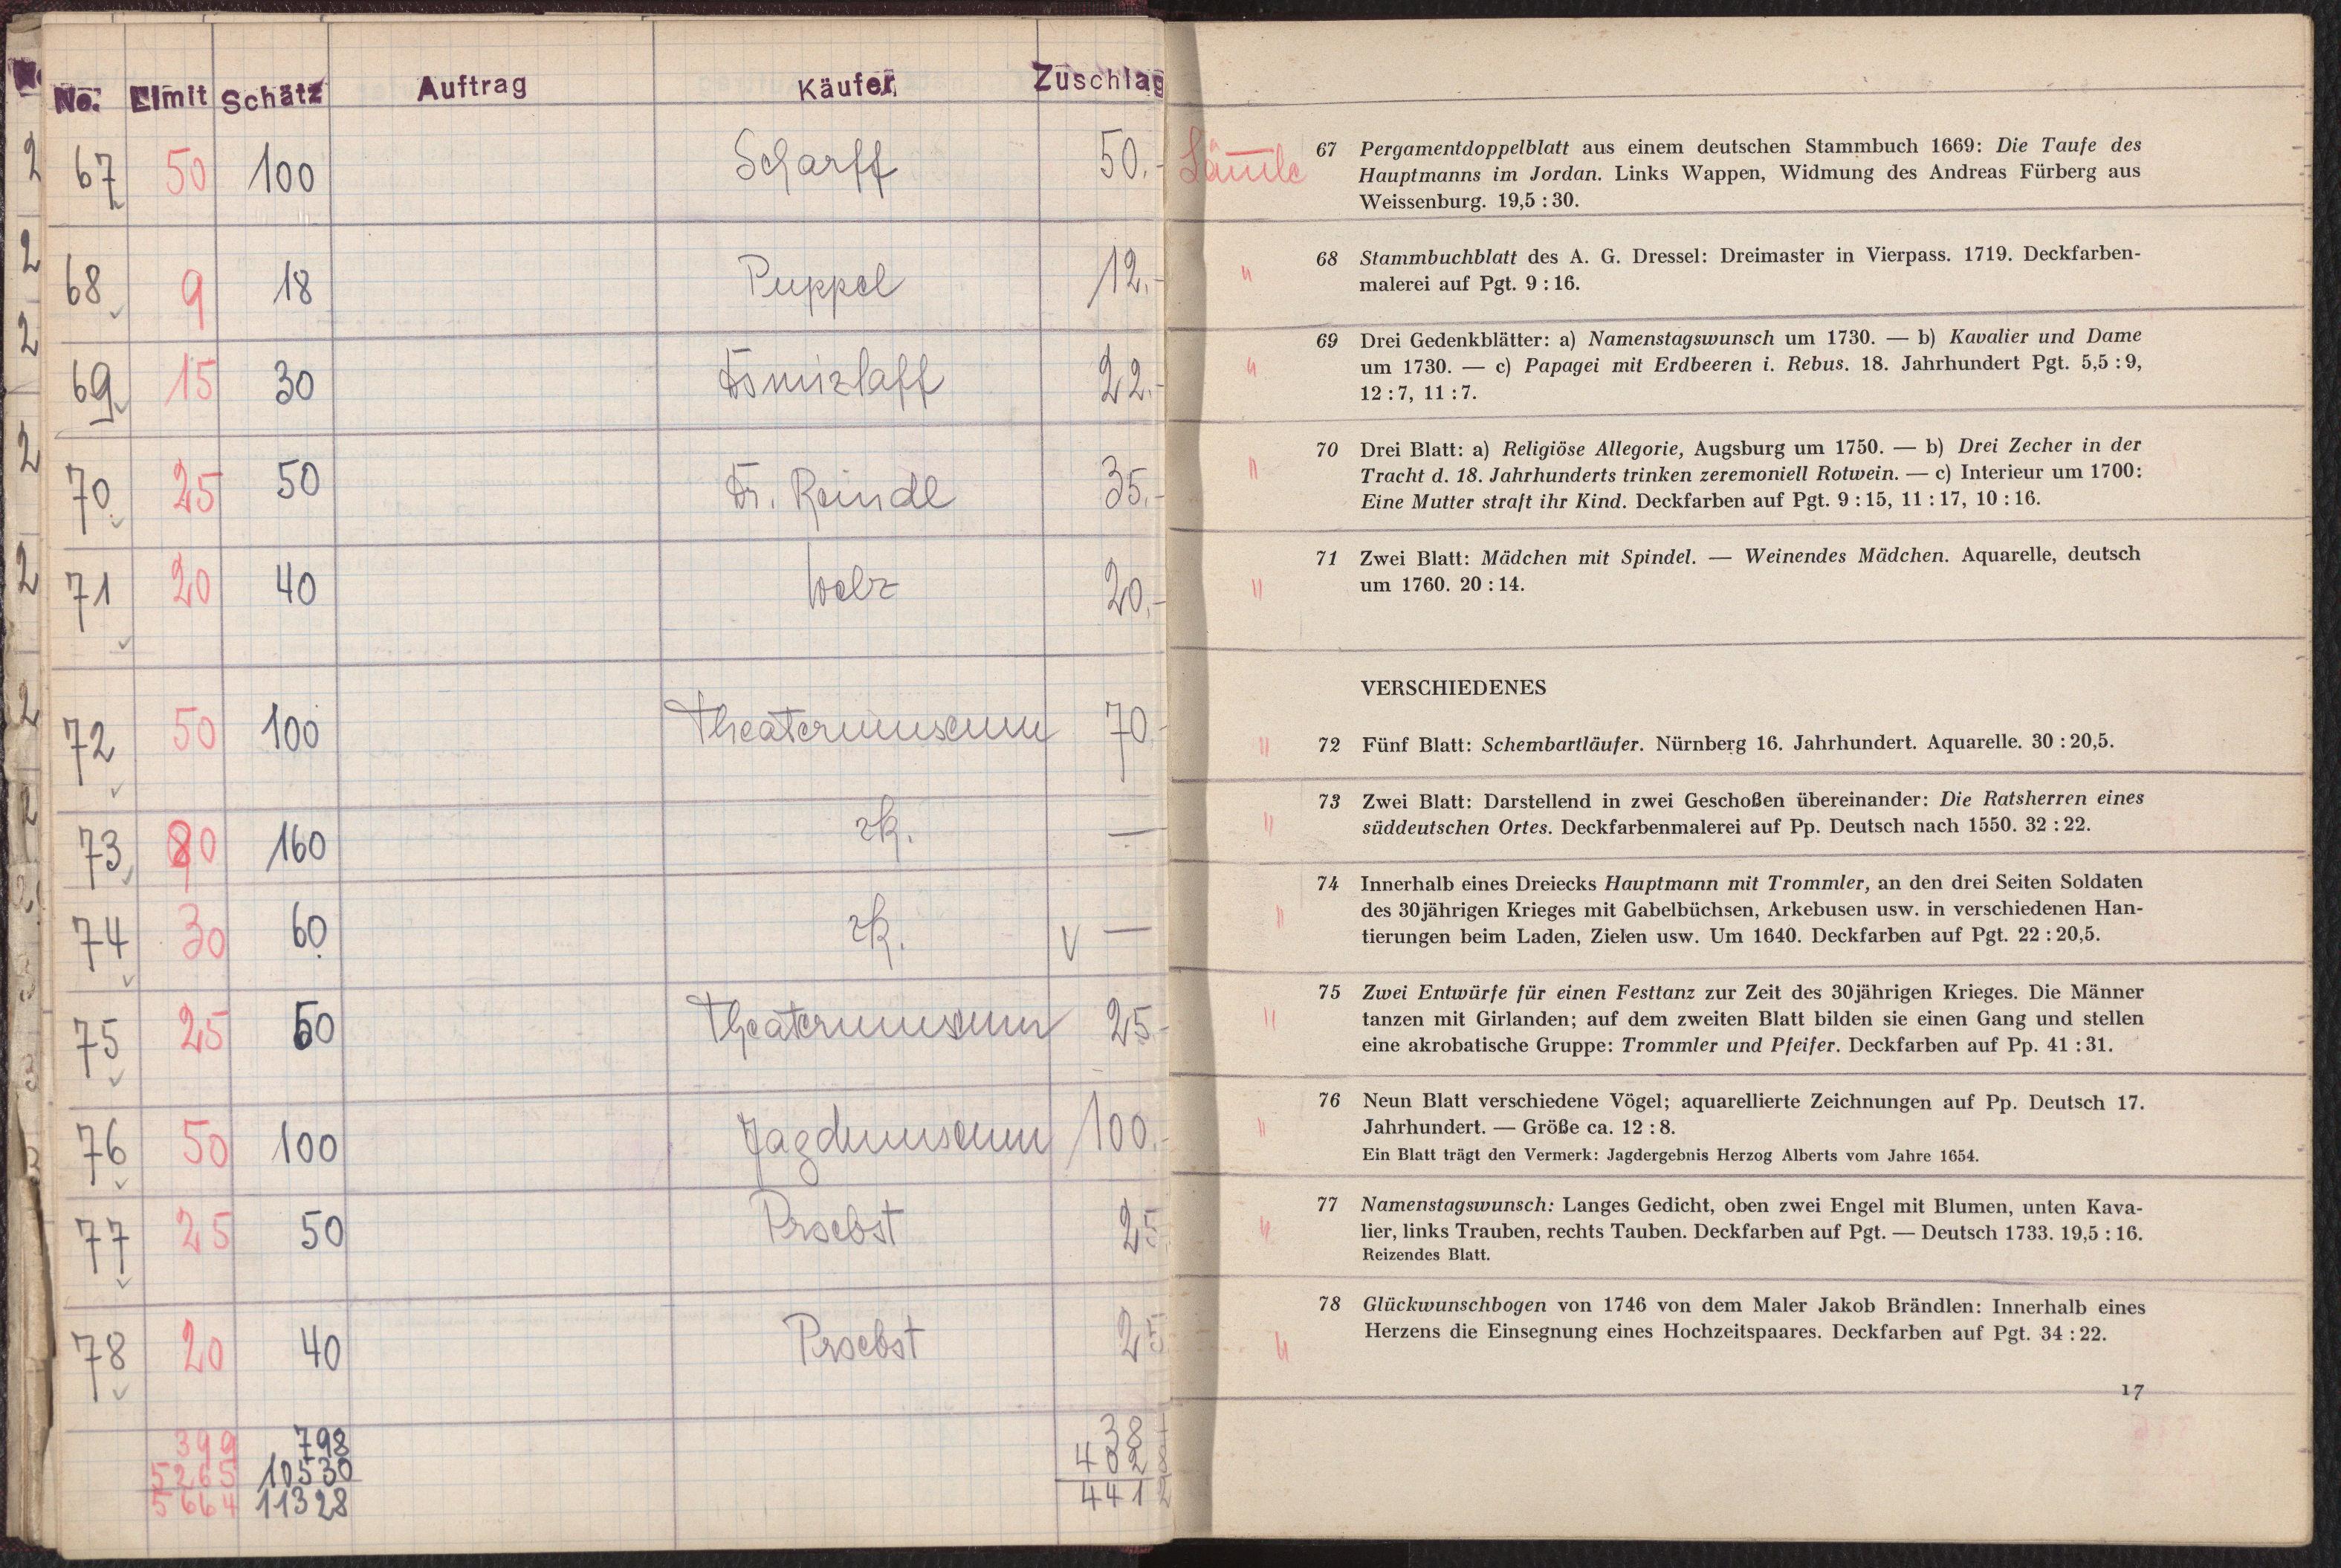 No. Limit Schätz Auftrag Käufer Zuschlag
67 50 100 Scharff 50.-
68 9 18 Puppel 12.-
69 15 30 Domizlaff 22.-
70 25 50 Dr. Reindl 35.-
71 20 40 Welz 20.-
72 50 100 Theatermuseum 70.-
73 80 160 zk. —
74 30 60 zk. V —
75 25 50 Theatermuseum 25.-
76 50 100 Jagdmuseum 100.-
77 25 50 Proebst 25
78 20 40 Proebst 25
399 798
5265 10530 4028
5664 11328 4412
67 Pergamentdoppelblatt aus einem deutschen Stammbuch 1669: Die Taufe des
Hauptmanns im Jordan. Links Wappen, Widmung des Andreas Fürberg aus
Weissenburg. 19,5 : 30.
" 68 Stammbuchblatt des A. G. Dressel: Dreimaster in Vierpass. 1719. Deckfarben-
malerei auf Pgt. 9 : 16.
69 Drei Gedenkblätter: a) Namenstagswunsch um 1730. — b) Kavalier und Dame
" um 1730. — c) Papagei mit Erdbeeren i. Rebus. 18. Jahrhundert Pgt. 5,5 : 9,
12 : 7, 11 : 7.
70 Drei Blatt: a) Religiöse Allegorie, Augsburg um 1750. — b) Drei Zecher in der
" Tracht d. 18. Jahrhunderts trinken zeremoniell Rotwein. — c) Interieur um 1700:
Eine Mutter straft ihr Kind. Deckfarben auf Pgt. 9 : 15, 11 : 17, 10 : 16.
71 Zwei Blatt: Mädchen mit Spindel. — Weinendes Mädchen. Aquarelle, deutsch
" um 1760. 20 : 14.
VERSCHIEDENES
" 72 Fünf Blatt: Schembartläufer. Nürnberg 16. Jahrhundert. Aquarelle. 30 : 20,5.
73 Zwei Blatt: Darstellend in zwei Geschoßen übereinander: Die Ratsherren eines
" süddeutschen Ortes. Deckfarbenmalerei auf Pp. Deutsch nach 1550. 32 : 22.
74 Innerhalb eines Dreiecks Hauptmann mit Trommler, an den drei Seiten Soldaten
" des 30jährigen Krieges mit Gabelbüchsen, Arkebusen usw. in verschiedenen Han-
tierungen beim Laden, Zielen usw. Um 1640. Deckfarben auf Pgt. 22 : 20,5.
75 Zwei Entwürfe für einen Festtanz zur Zeit des 30jährigen Krieges. Die Männer
" tanzen mit Girlanden; auf dem zweiten Blatt bilden sie einen Gang und stellen
eine akrobatische Gruppe: Trommler und Pfeifer. Deckfarben auf Pp. 41 : 31.
76 Neun Blatt verschiedene Vögel; aquarellierte Zeichnungen auf Pp. Deutsch 17.
" Jahrhundert. — Größe ca. 12 : 8.
Ein Blatt trägt den Vermerk: Jagdergebnis Herzog Alberts vom Jahre 1654.
77 Namenstagswunsch: Langes Gedicht, oben zwei Engel mit Blumen, unten Kava-
" lier, links Trauben, rechts Tauben. Deckfarben auf Pgt. — Deutsch 1733. 19,5 : 16.
Reizendes Blatt.
78 Glückwunschbogen von 1746 von dem Maler Jakob Brändlen: Innerhalb eines
" Herzens die Einsegnung eines Hochzeitspaares. Deckfarben auf Pgt. 34 : 22.
17